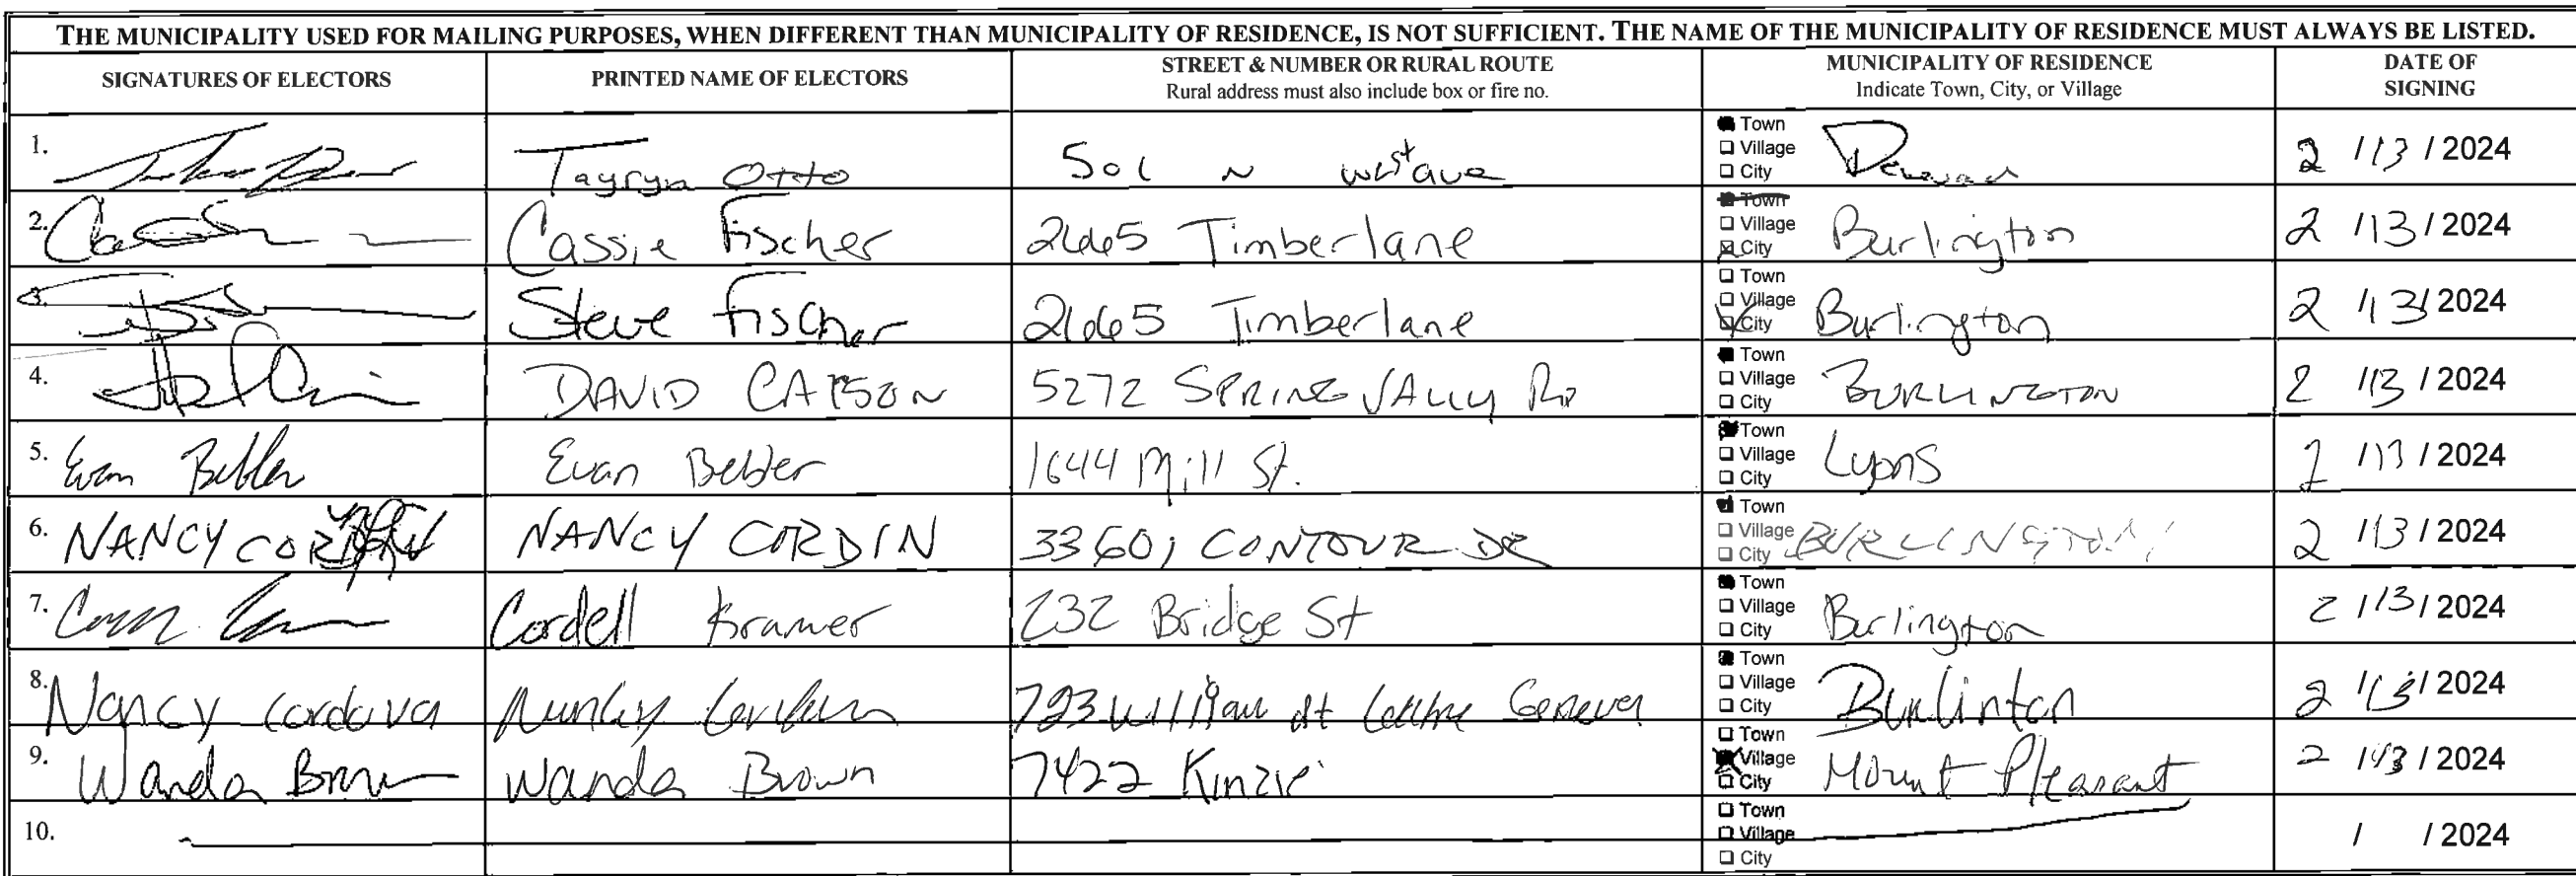 THE MUNICIPALITY USED FOR MAILING PURPOSES, WHEN DIFFERENT THAN MUNICIPALITY OF RESIDENCE, IS NOT SUFFICIENT. THE NAME OF THE MUNICIPALITY OF RESIDENCE MUST ALWAYS BE LISTED.
SIGNATURES OF ELECTORS PRINTED NAME OF ELECTORS STREET & NUMBER OR RURAL ROUTE MUNICIPALITY OF RESIDENCE DATE OF SIGNING
Rural address must also include box or fire no. Indicate Town, City, or Village
1. Tayryn Otto 501 N West ave Town Village City 2 /13 / 2024
2. Cassie Fischer 2665 Timberlane Town Village City Burlington 2 /13 / 2024
3. Steve Fischer 2665 Timberlane Town Village City Burlington 2 /13 / 2024
4. DAVID CARSON 5272 SPRING VALLY RD Town Village City BURLINGTON 2 /13 / 2024
5. Evan Bebber Evan Bebber 1644 Mill St. Town Village City Lyons 2 /13 / 2024
6. NANCY NANCY CORDIN 33601 CONTOUR DR Town Village City BURLINGTON 2 /13 / 2024
7. Cordell Kramer 232 Bridge St Town Village City Burlington 2 /13 / 2024
8. Nancy Cordova 723 William st Geneva Town Village City Burlinton 2 /13 / 2024
9. Wanda Brown Wanda Brown 7422 Kinzie Town Village City Mount Pleasant 2 /13 / 2024
10. Town Village City / / 2024